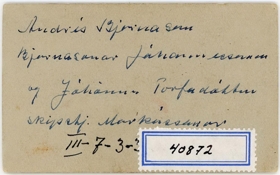 Andrés Bjarnason
Bjarnasonar Jóhannessonar
og Jóhanna Þorfadóttir
skipstj. Markússonar
III-7-3-2
40872